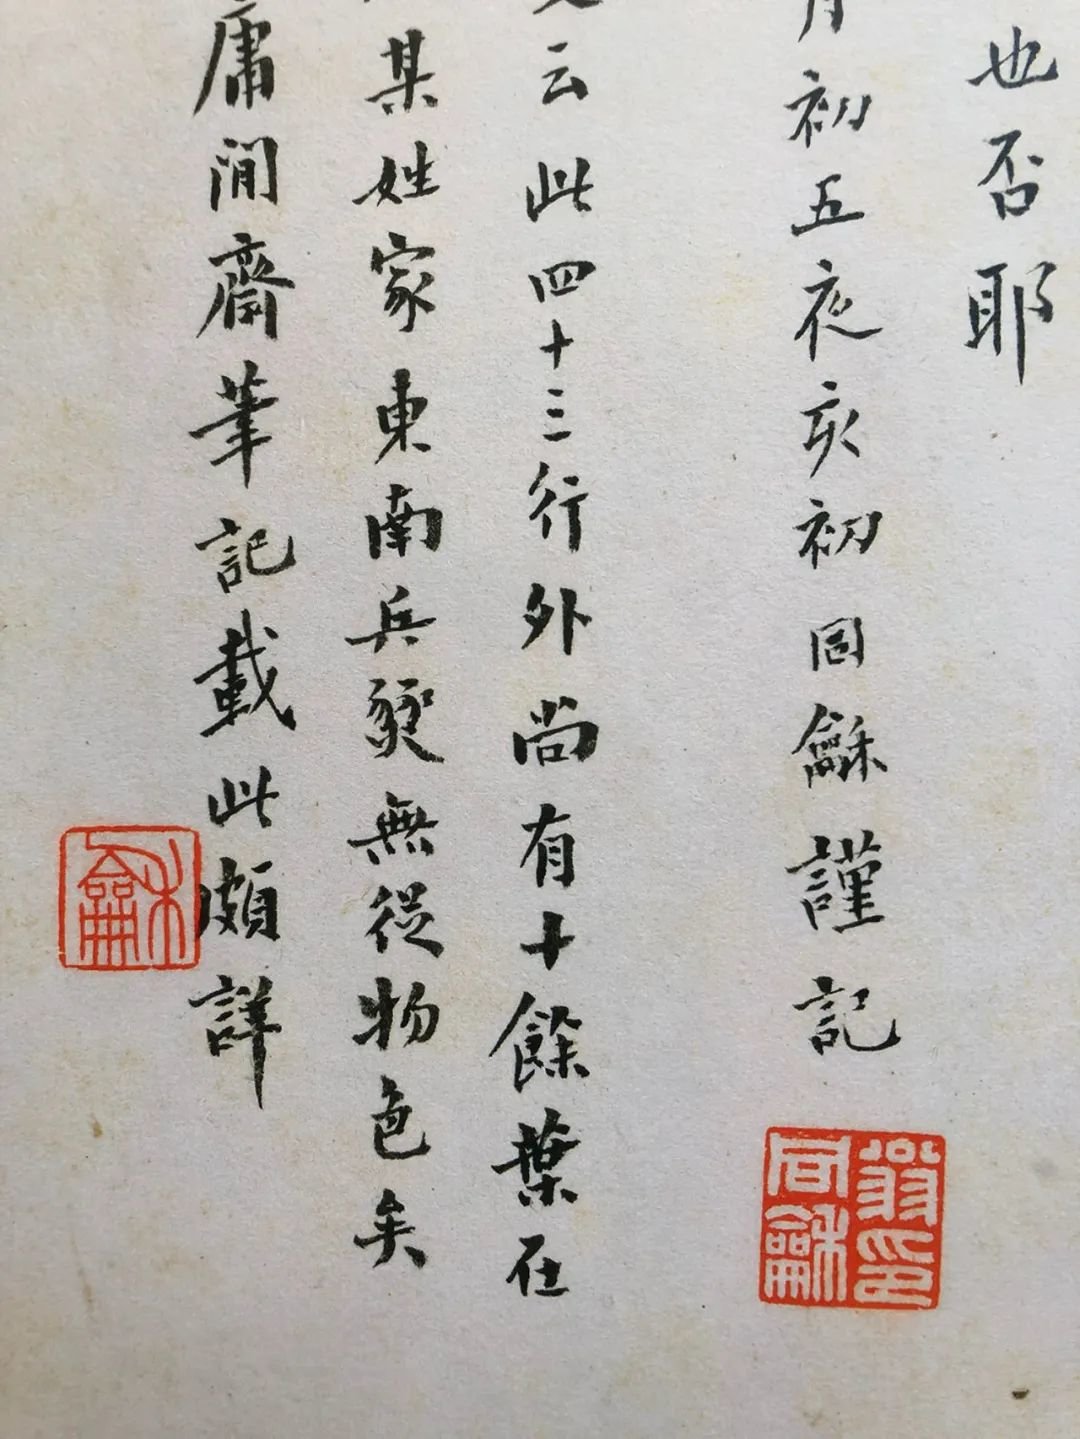 也否耶
月初五夜亥初同龢謹記
云此四十三行外尚有十餘葉在
某姓家東南兵燹無從物色矣
庸閒齋筆記載此頗詳
翁同龢印
龢